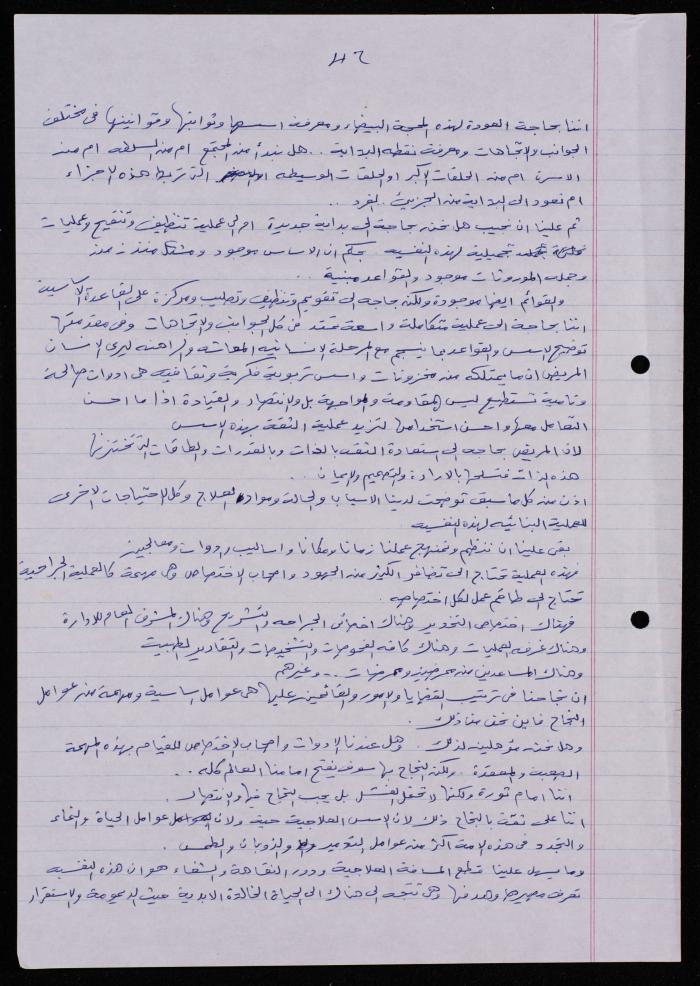 ٤٦
اننا بحاجة العودة لهذه المحجة البيضاء ومعرفة اسسها وثوابتها وقوانينها في مختلف
الجوانب والاتجاهات ومعرفة نقطه البداية .. هل نبدأ من المجتمع ام من السلطه ام من
الاسرة ام من الحلقات الاكبر او الحلقات الوسيطه التي تربط هذه الاجزاء
ام نعود الى البداية من الجزيئ . الفرد ..
ثم علينا ان نجيب هل نحن بحاجة الى بداية جديدة ام الى عملية تنظيف وتنقيح وعمليات
تجميلية لهذه النفسيه بحكم ان الاساس موجود ومشكل منذ زمن
وجمله الموروثات موجود والقواعد مبنية ..
والقوائم ايضا موجودة ولكن بحاجه الى تقويم وتنظيف وتصليب ومركزة على القاعدة الاساسية
اننا بحاجة الى عملية متكاملة واسعة تمتد من كل الجوانب والاتجاهات وفي مقدمتها
توضيح الاسس والقواعد بما ينسجم مع المرحلة الانسانيه المعاشه والراهنه ليرى الانسان
المريض ان ما يمتلكه من مخزونات واسس تربوية فكرية وثقافيه هي ادوات صالحة
وتامية تستطيع ليس المقاومة والمواجهة بل والانتصار والقيادة اذا ما احسن
التعامل معها واحسن استخدامها لتزيد عملية الثقة بهذه الاسس
لان المريض بحاجه الى استعادة الثقه بالذات وبالقدرات والطاقات التي تختزنها
هذه الذات فتسلحها بالارادة والتصميم والايمان ..
اذن من كل ما سبق توضحت لدينا الاسباب والحالة ومواد العلاج وكل الاحتياجات الاخرى
للعملية البنائيه لهذه النفسيه
بقي علينا ان ننظم ونمنهج عملنا زمانا ومكانا واساليب وادوات ومعالجين
فهذه العملية تحتاج الى تضافر الكثير من الجهود واصحاب الاختصاص وهي مهمة كالعملية الجراحية
تحتاج الى طاقم عمل لكل اختصاصه
فهناك اختصاصي التخدير وهناك اخصائي الجراحه والتشريح وهناك المشرف العام للادارة
وهناك غرفه العمليات وهناك كافه الفحوصات والتشخيصات والتقادير الطبية
وهناك المساعدين من ممرضين وممرضات .. وغيرهم
ان نجاحنا في ترتيب القضايا والامور والقائمين عليها هي عوامل اساسية ومهمة من عوامل
النجاح فاين نحن من ذلك .
وهل نحن مؤهلين لذلك . وهل عندنا الادوات واصحاب الاختصاص للقيام بهذه المهمة
الصعبة والمعقدة .. ولكن النجاح بها سوف يفتح امامنا العالم كله ..
اننا امام ثورة ولكنها لا تحتمل الفشل بل يجب النجاح فيها والانتصار .
اننا على ثقة بالنجاح ذلك لان الاسس العلاجية حيه ولان عوامل الحياة والنماء
والتجدد في هذه الامة اكثر من عوامل التدمير والذوبان والطمس .
وما يسهل علينا قطع المسافة العلاجية ودور النقاهة والشفاء هو ان هذه النفسيه
تعرف مصيرها وهدفها وهي تتجه الى هناك الى الحياة الخالدة الابدية حيث الديمومة والاستقرار